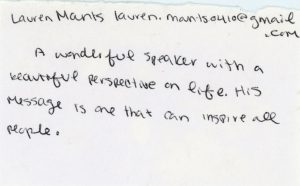 Lauren Mants lauren.mants0410@gmail
.com
A wonderful speaker with a
beautiful perspective on life. His
message is one that can inspire all
people.